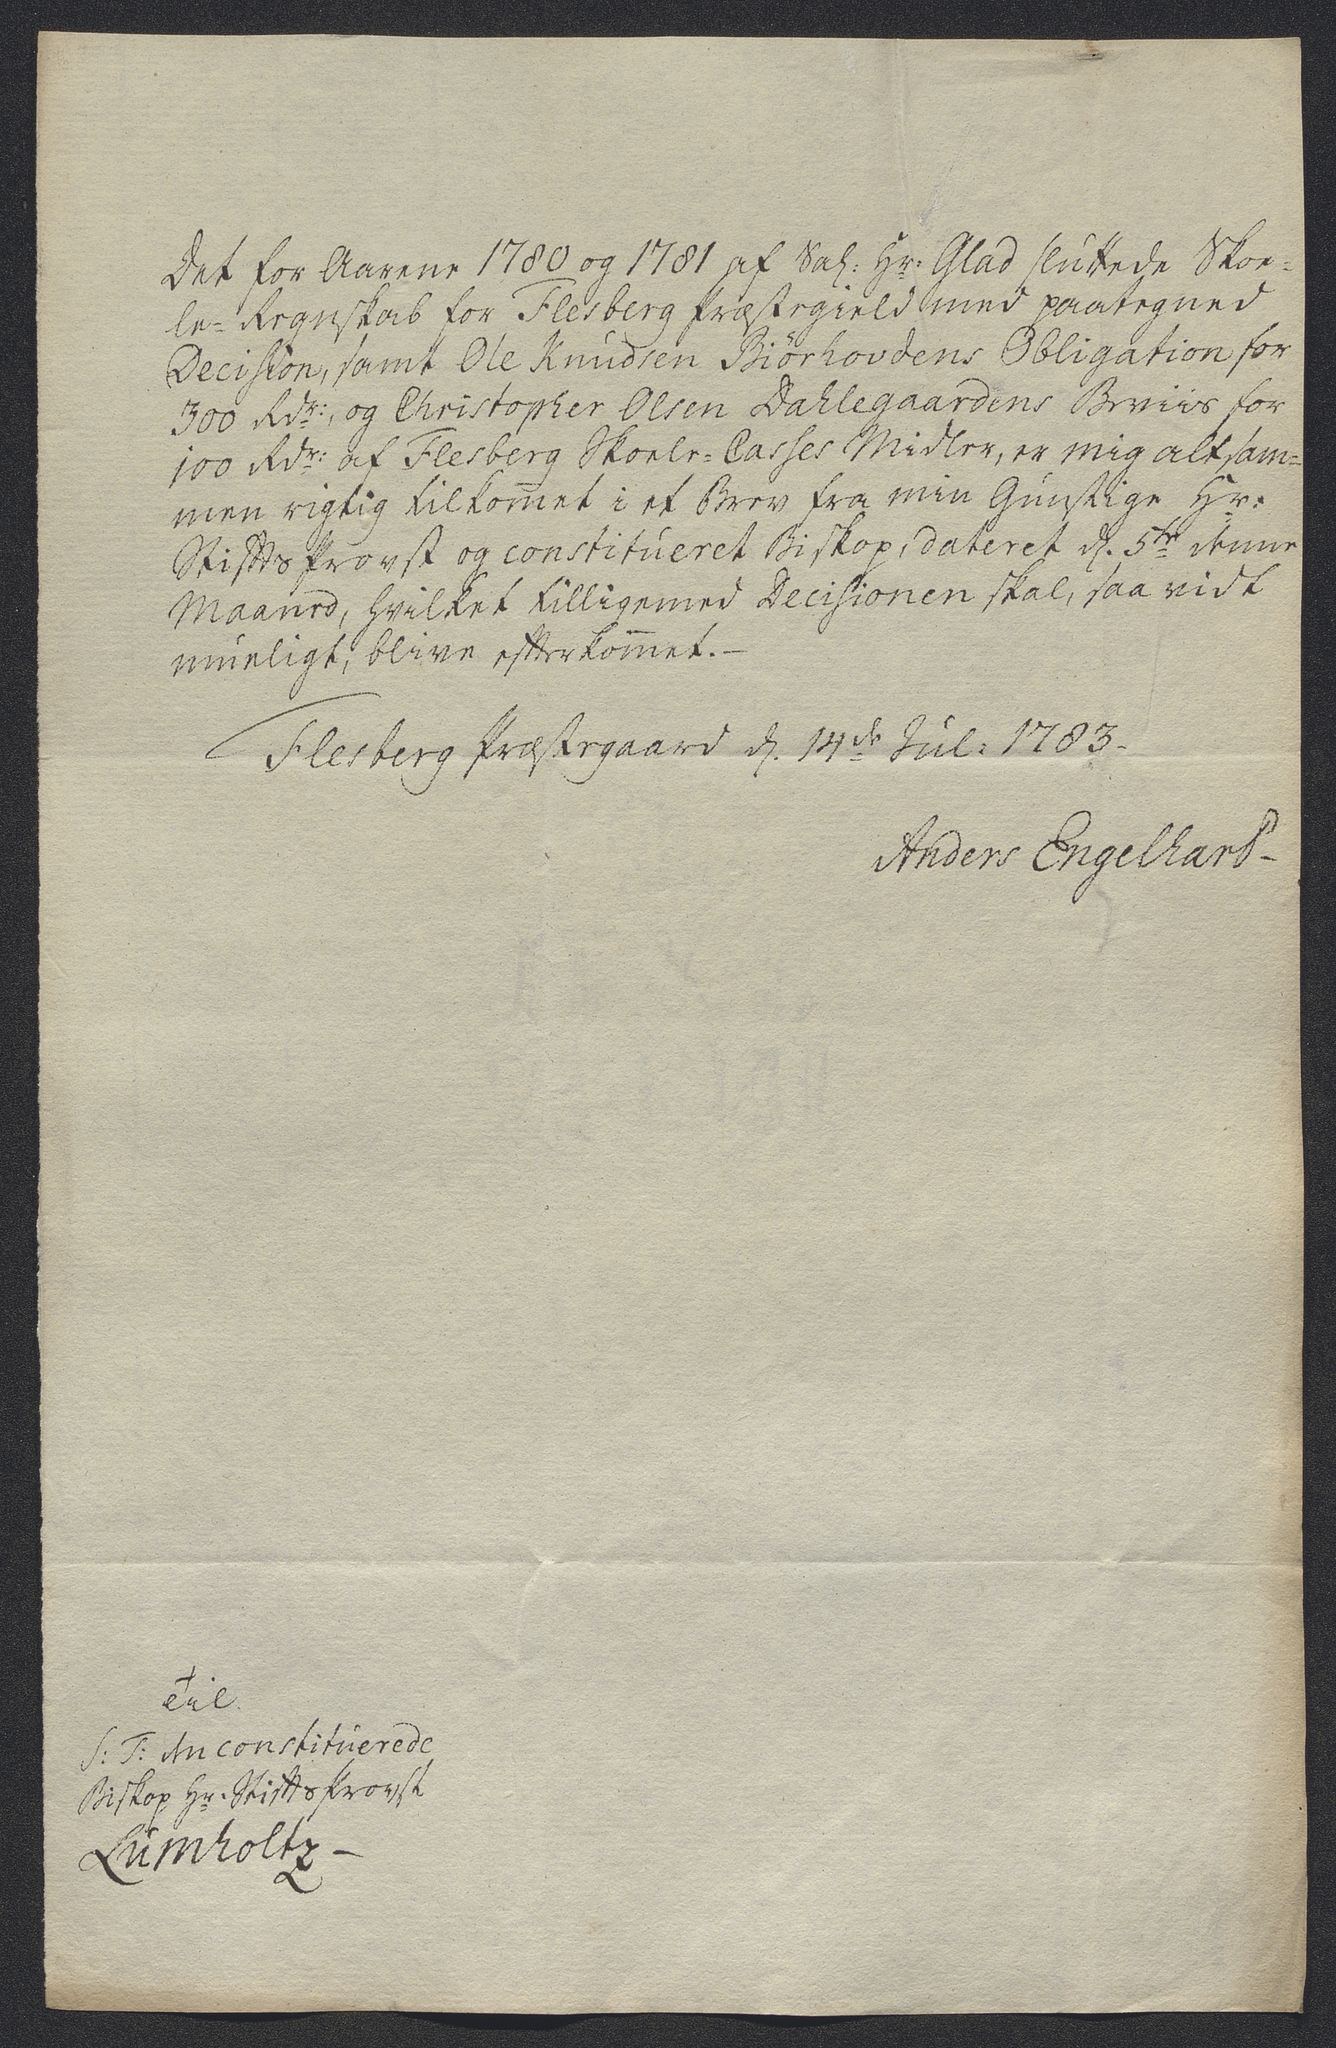 Det for Aarene 1780 og 1781 af Sal: Hr: Glad sluttede Skoe=
le= Regnskab for Flesberg Præstegield med paategned
Decision, samt Ole Knudsen Biörhovdens Obligation for
300 Rdr:, og Christopher Olsen Dahlegaardens Beviis for
100 Rdr: af Flesberg Skoele= Casses Midler, er mig altsam=
men rigtig tilkom̅et i et Brev fra min Gunstige Hr:
StiftsProvst og constitueret Biskop, dateret d. 5te denne
Maaned, hvilket tilligemed Decisionen skal, saa vidt
mueligt, blive efterkom̅et. –
Flesberg Præstegaard d. 14de Jul: 1783 –
Anders Engelhard –
Til
S: T: Den constituerede
Biskop Hr. StiftsProvst
Lumholtz –